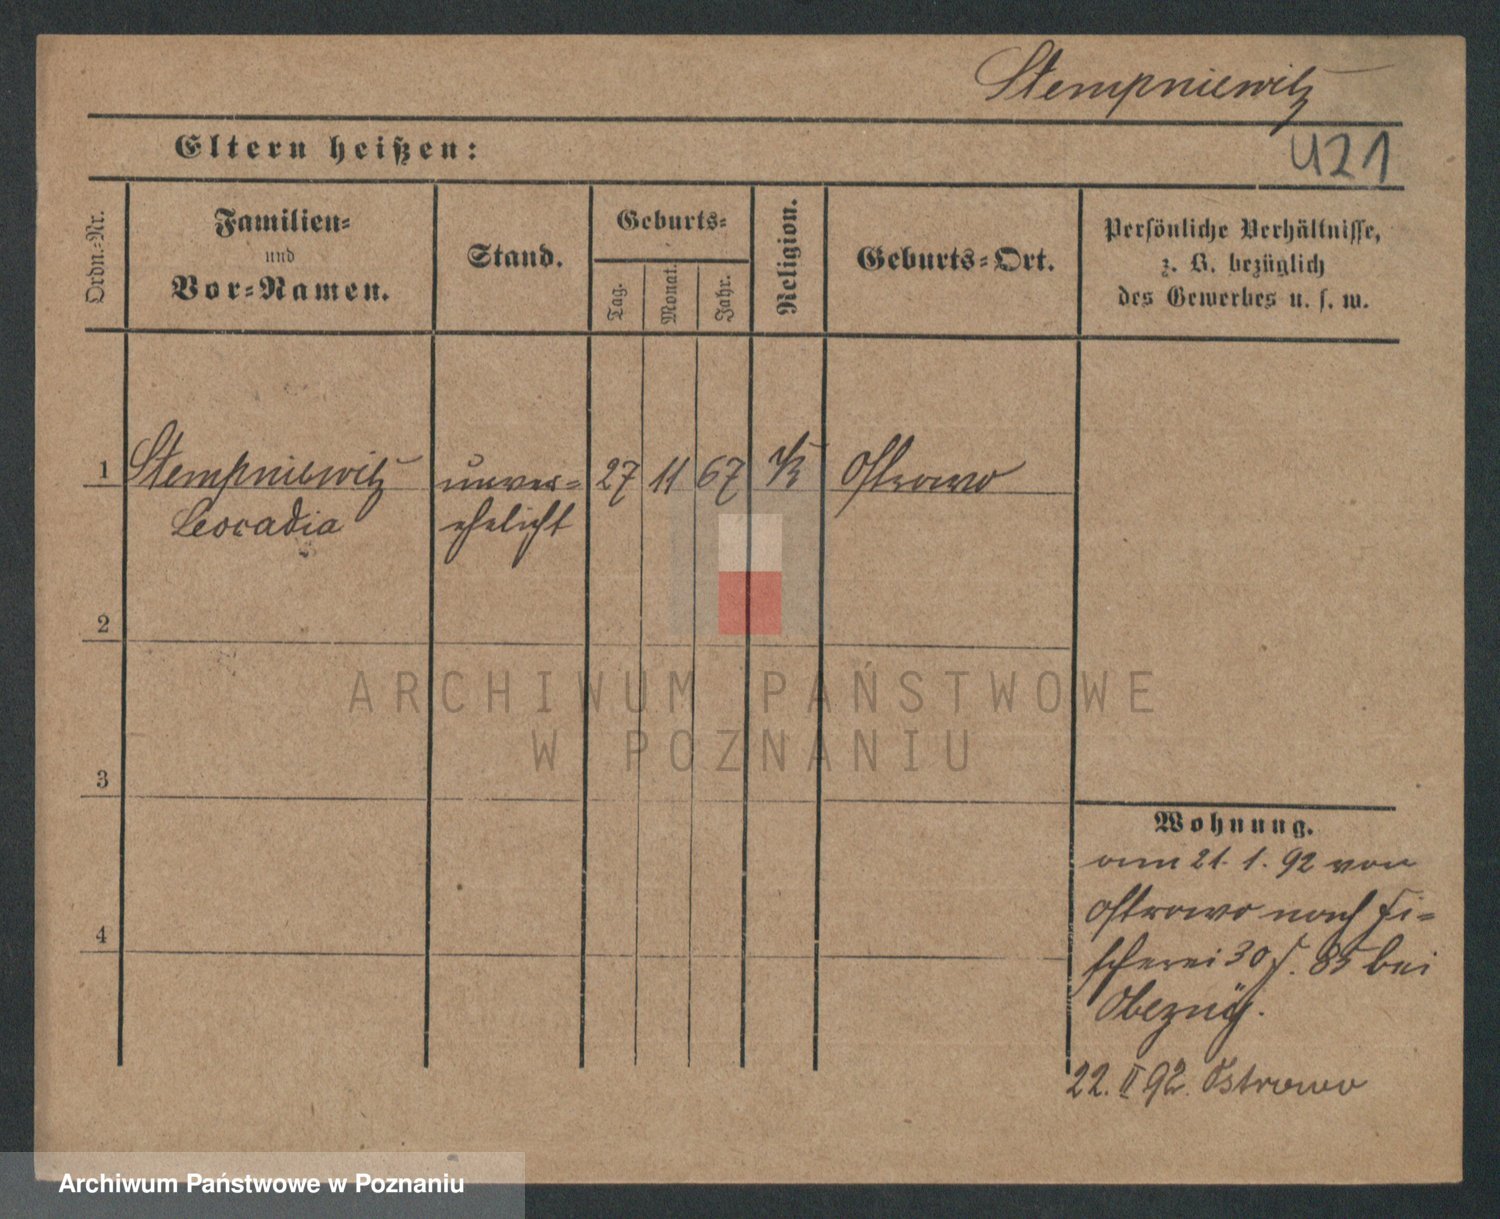 Stempniewitz
Eltern heißen:
421
Ordn.-Nr.
Familien-
und
Vor-Namen.
Stand.
Geburts-
Tag.
Monat.
Jahr.
Religion.
Geburts-Ort.
Persönliche Verhältnisse,
z. B. bezüglich
des Gewerbes u. s. w.
1 Stempniewitz unver- 27 11 67 Ostrowo
Leocadia ehelicht
2
ARCHIWUM PAŃSTWOWE
W POZNANIU
3
Wohnung.
am 21. 1. 92 von
Ostrowo nach Fi-
4
scherei 30 bei
22. II 92. Ostrowo
Archiwum Państwowe w Poznaniu